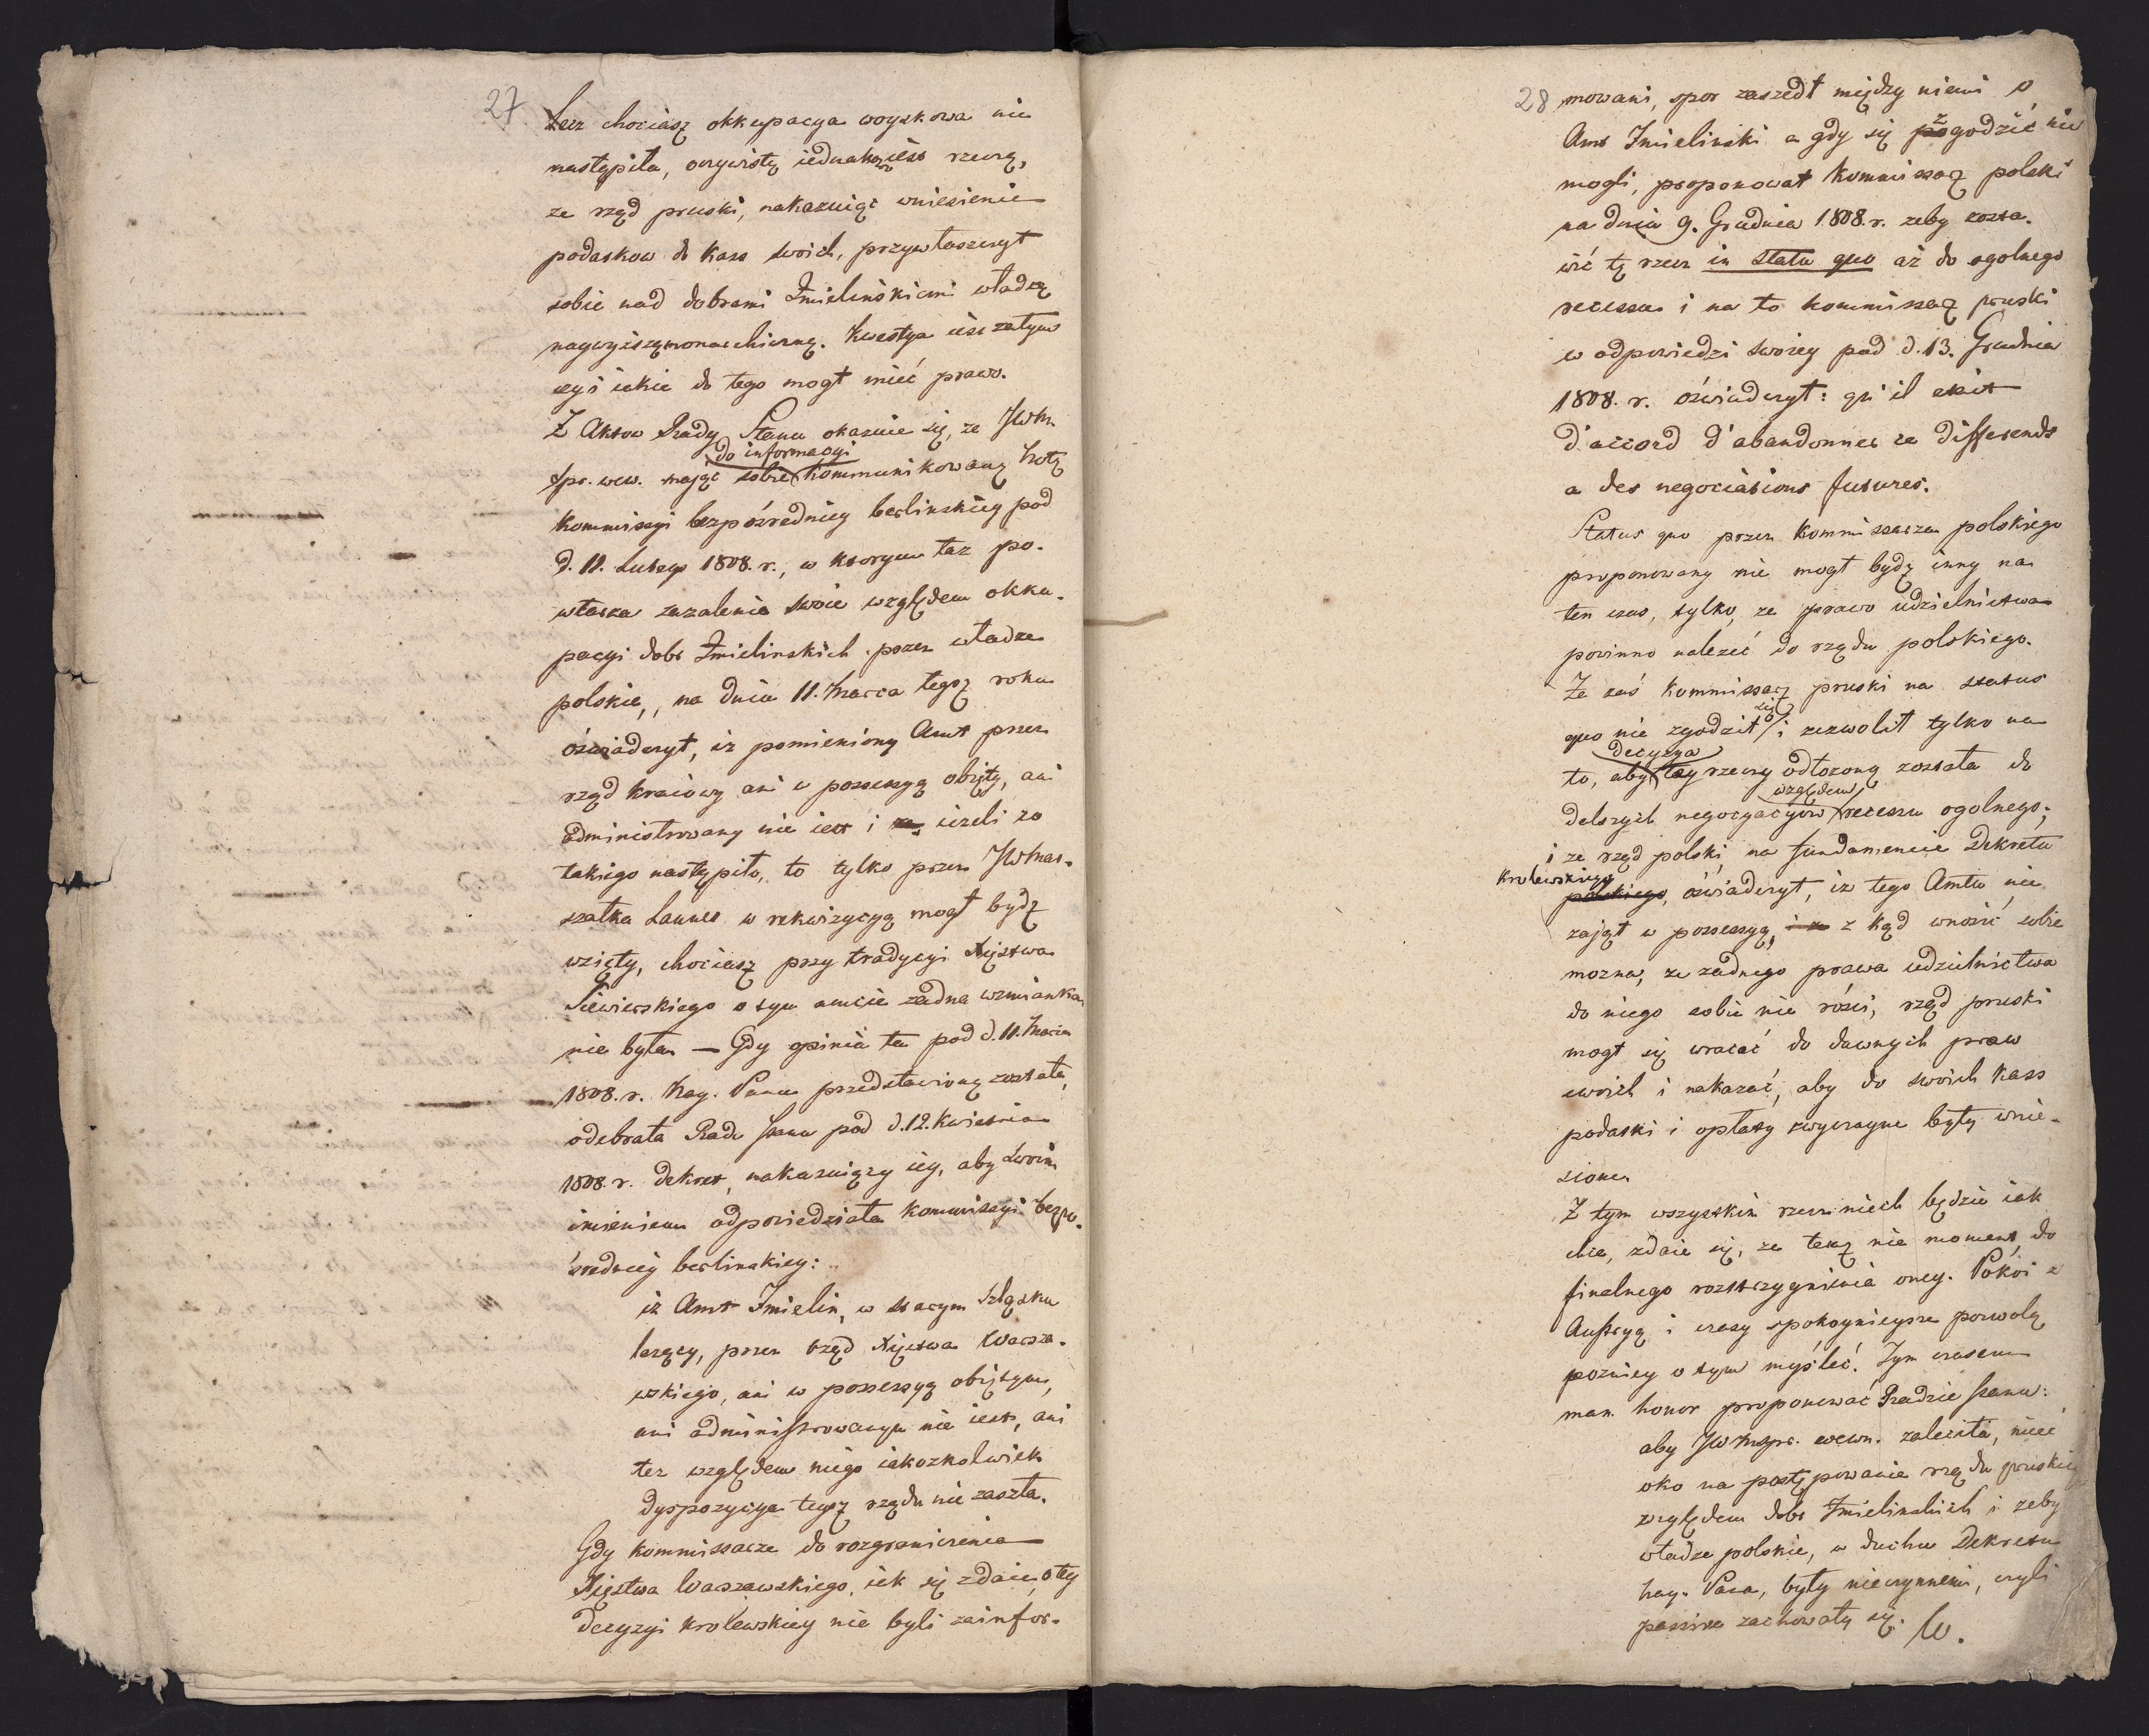 27
Lecz chociasz okkupacya woyskowa nie
nastąpiła, oczywistą iednakże iest rzeczą,
ze rząd pruski, nakazuiąc wniesienie
podatkow do kass swoich, przywłaszczył
sobie nad dobrami Imielinskiemi władzę
naywyższą monarchiczną. Kwestya iest zatym
czyś iakie do tego mogł mieć prawo.
Z Aktow Rady Stanu okazuie się, ze JWM.
do informacyi
Spr. wew. mając sobie kommunikowaną Notę
Kommissyi bezpośredniey berlinskiey pod
d. 11. Lutego 1808. r., w ktorym taz po-
wtarza zazalenie swoie względem okku-
pacyi dobr Imielinskich przez władze
polskie, na dniu 11. Marca tegoż roku
oświadczył, iz pomieniony Amt przez
rząd kraiowy ani w possessyą obięty, ani
administrowany nie iest i iezeli co
takiego nastąpiło, to tylko przez JWMar-
szałka Lannes w rekwizycyą mogł bydź
wzięty, chociasz przy tradycyi Xięstwa
Siewierskiego o tym amcie zadna wzmianka
nie była — Gdy opinia ta pod d. 11. Marca
1808. r. Nay. Panu przedstawioną została,
odebrała Rada stanu pod d. 12. Kwietnia
1808. r. dekret, nakazuiący iey, aby swoim
imieniem odpowiedziała Kommissyi bezpo-
średniey berlinskiey:
iz Amt Imielin, w starym Szląsku
lezący, przez rząd Xięstwa Warsza-
wskiego, ani w possessyą obiętym,
ani administrowanym nie iest, ani
tez względem niego iakozkolwiek
dyspozycya tegoż rządu nie zaszła.
Gdy kommissarze do rozgraniczenia
Xięstwa Warszawskiego, iak się zdaie, o tey
decyzyi krolewskiey nie byli zainfor-
28
mowani, spor zaszedł między niemi o
Amt Imielinski a gdy się zgodzić nie
mogli, proponował Kommissarz polski
na dniu 9. Grudnia 1808. r. zeby zosta-
wić tę rzecz in statu quo aż do ogolnego
recessu i na to kommissarz pruski
w odpowiedzi swoiey pod d. 13. Grudnia
1808. r. oświadczył: qu'il etoit
d'accord d'abandonner ce differends
a des negociations futures.
Status quo przez kommissarza polskiego
proponowany nie mogł bydź inny na
ten czas, tylko, ze prawo udzielnictwa
powinno nalezeć do rządu polskiego.
Ze zaś kommissarz pruski na status
się
quo nie zgodził i zezwolił tylko na
decyzya
to, aby tey rzeczy odłozoną została do
względem
dalszych negocyacyow recessu ogolnego;
i ze rząd polski na fundamencie Dekretu
krolewskiego
polskiego, oświadczył, iz tego Amtu nie
zaiął w possessyą, z kąd wnosić sobie
mozna, ze zadnego prawa udzielnictwa
do niego sobie nie rości, rząd pruski
mogł się wracać do dawnych praw
swoich i nakazać, aby do swoich kass
podatki i opłaty zwyczayne były wnie-
sione.
Z tym wszystkim rzecz niech będzie iak
chce, zdaie się, ze teraz nie moment do
finalnego rozstrzygnienia oney. Pokóy z
Austryą i czasy spokoynieysze pozwolą
pozniey o tym myśleć. Tym czasem
mam honor proponować Radzie stanu:
aby JWMspr. wewn. zaleciła, mieć
oko na postępowanie rządu pruskiego
względem dobr Imielinskich i zeby
władze polskie, w duchu Dekretu
Nay. Pana, były nieczynnemi, czyli
passive zachowały się. W.